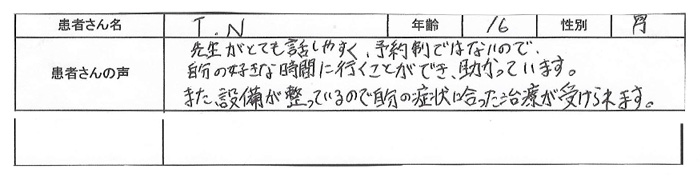 患者さん名 T.N 年齢 16 性別 男
患者さんの声
先生がとても話しやすく、予約制ではないので、
自分の好きな時間に行くことができ、助かっています。
また、設備が整っているので自分の症状に合った治療が受けられます。